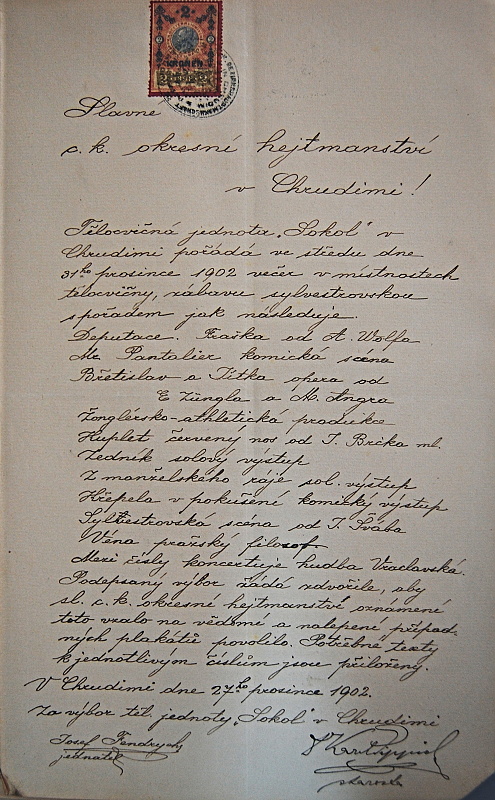 2
KRONEN
Slavné
c. k. okresní hejtmanství
v Chrudimi!
Tělocvičná jednota „Sokol" v
Chrudimi pořádá ve středu dne
31ho prosince 1902 večer v místnostech
tělocvičny, zábavu sylvestrovskou
s pořadem jak následuje.
Deputace. Fraška od A. Wolfa
Mr. Pantalier komická scéna
Břetislav a Titka opera od
E Züngla a M. Angra
Žonglérsko-athletická produkce
Kuplet červený nos od J. Brčka ml.
Zedník solový výstup
Z manželského ráje sol. výstup
Křepela v pokušení komický výstup
Sylvestrovská scéna od J. Švába
Véna pražský filosof
Mezi čísly koncertuje hudba Vraclavská.
Podepsaný výbor žádá zdvořile, aby
sl. c. k. okresní hejtmanství oznámení
toto vzalo na vědomí a nalepení případ-
ných plakátů povolilo. Potřebné texty
k jednotlivým číslům jsou přiloženy.
V Chrudimi dne 27ho prosince 1902.
Za výbor těl. jednoty „Sokol" v Chrudimi
Josef Fendrych
jednatel
starosta